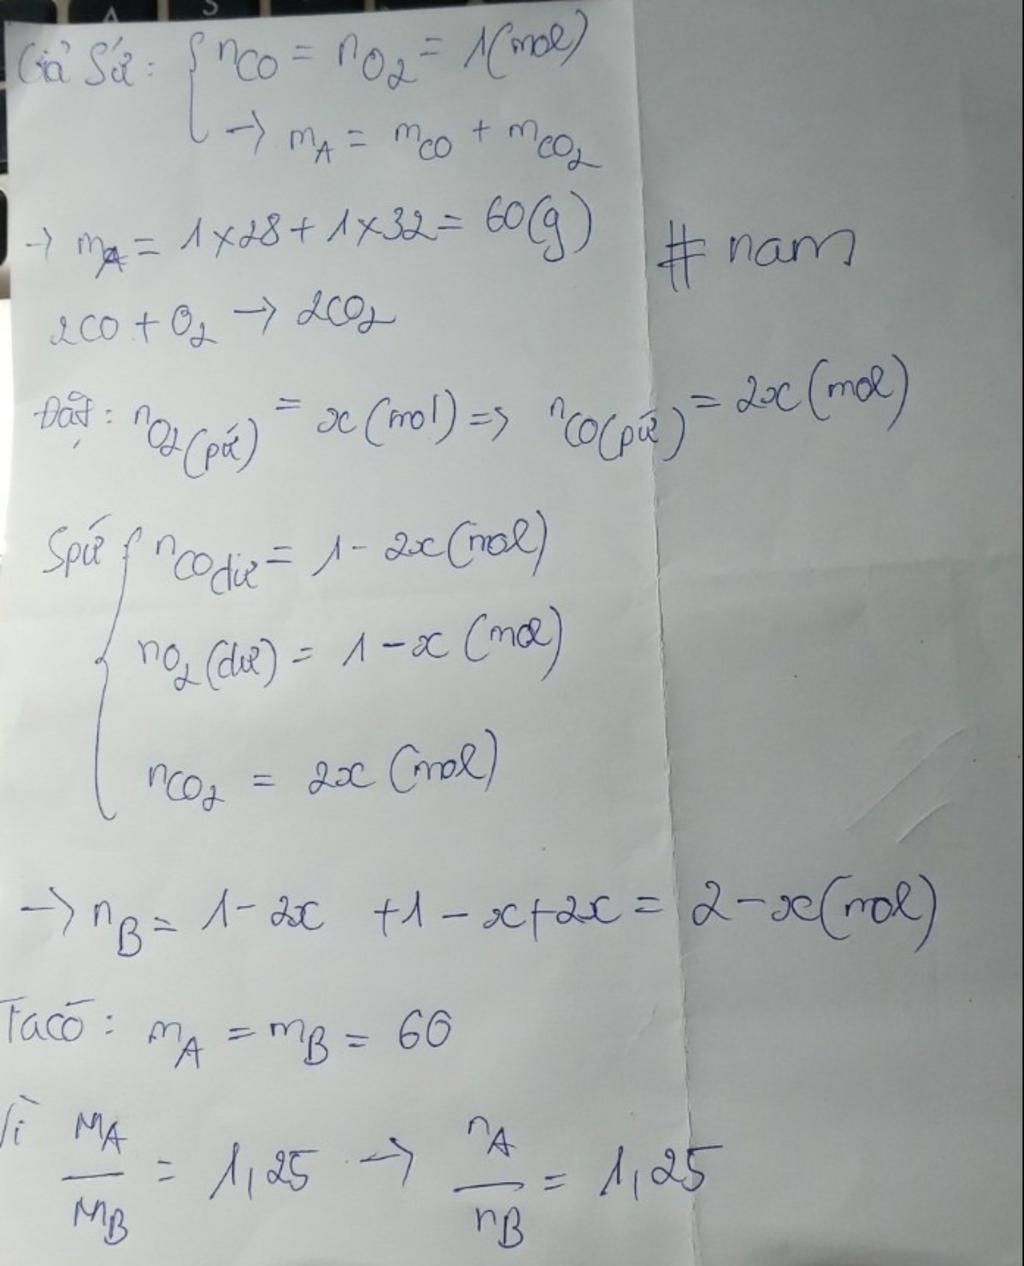 Giả Sử: { nCO = nO2 = 1(mol)
→ mA = mCO + mCO2
→ mA = 1×28 + 1×32 = 60(g) # nam
2CO + O2 → 2CO2
Đặt: nO2(pứ) = x(mol) => nCO(pứ) = 2x(mol)
Spứ { nCO dư = 1 - 2x(mol)
nO2(dư) = 1 - x (mol)
nCO2 = 2x (mol)
→ nB = 1 - 2x + 1 - x + 2x = 2 - x(mol)
Ta có: mA = mB = 60
Vì MA/MB = 1,25 → nA/nB = 1,25